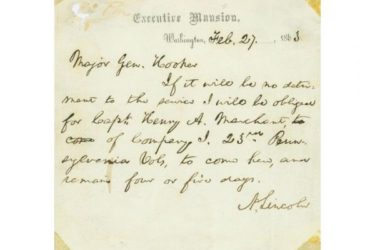 Executive Mansion,
Washington, Feb. 27, 1863.
Major Gen. Hooker
If it will be no detri-
ment to the service I will be obliged
for Capt. Henry A. Merchant to
come of Company, I. 23rd Penn-
sylvania Vols, to come here, and
remain four or five days.
A. Lincoln